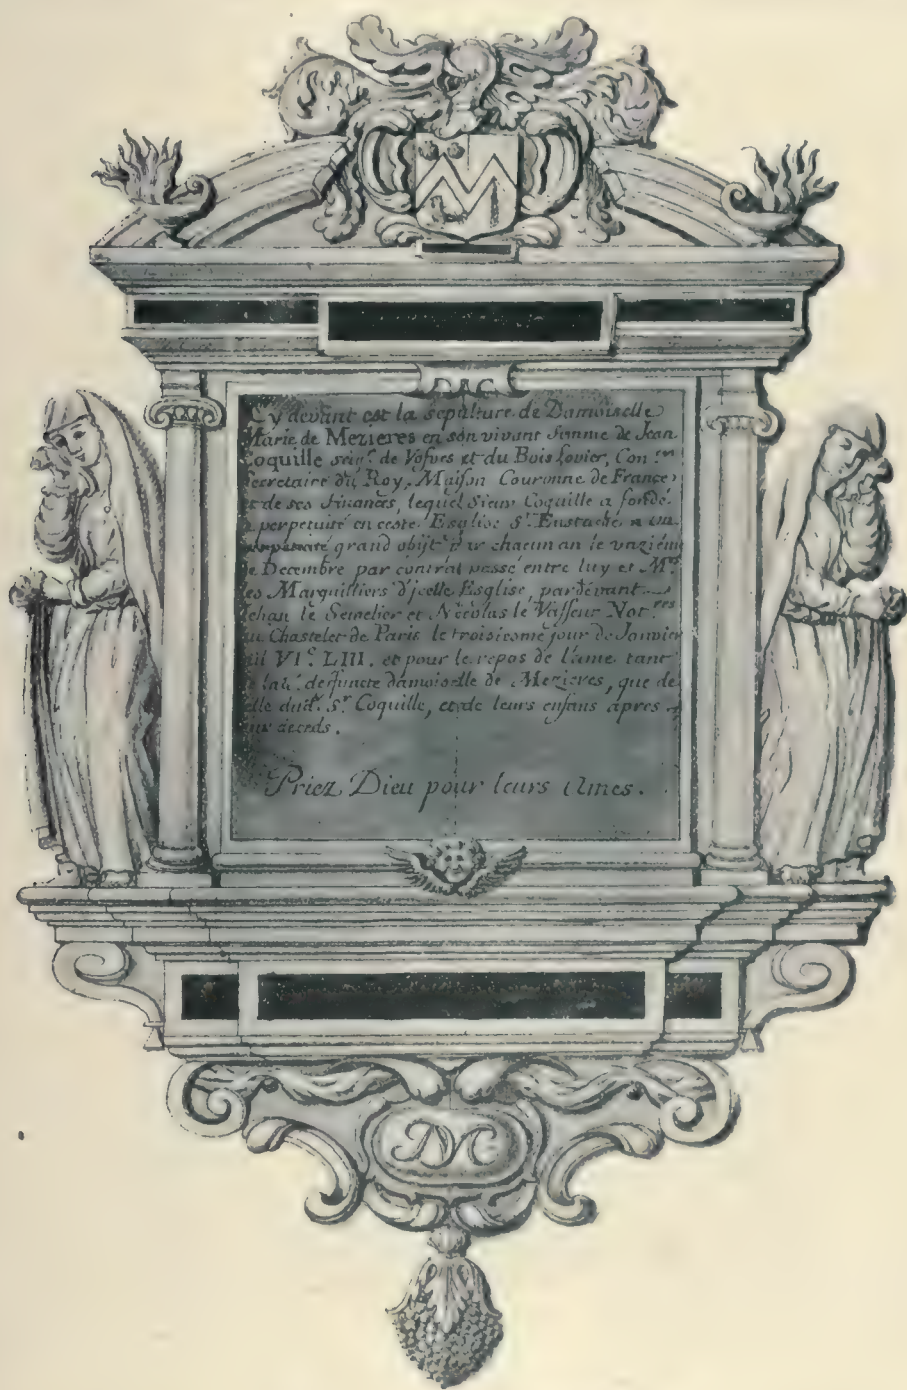 DAC
Cy devant est la sepulture de Damoiselle
Marie de Mezieres en son vivant femme de Jean
Coquille seigr. de Vosves et du Bois Lovier, Con.er
Secretaire du Roy, Maison Couronne de France
et de ses Finances, lequel Sieur Coquille a fondé
a perpetuité en ceste Esglise St. Eustache, a
grand obijt par chacun an le unziéme
de Decembre par contrat passé entre luy et Mrs
les Marguilliers d'jcelle Esglise, pardevant
Jehan le Semelier et Nicolas le Vasseur Notres
au Chastelet de Paris le troisiesme jour de Janvier
Mil VIc. LIII. et pour le repos de l'ame tant
de lad. defuncte damoiselle de Mezieres, que de
celle dudt. Sr. Coquille, et de leurs enfans apres
leur deceds.
Priez Dieu pour leurs Ames.